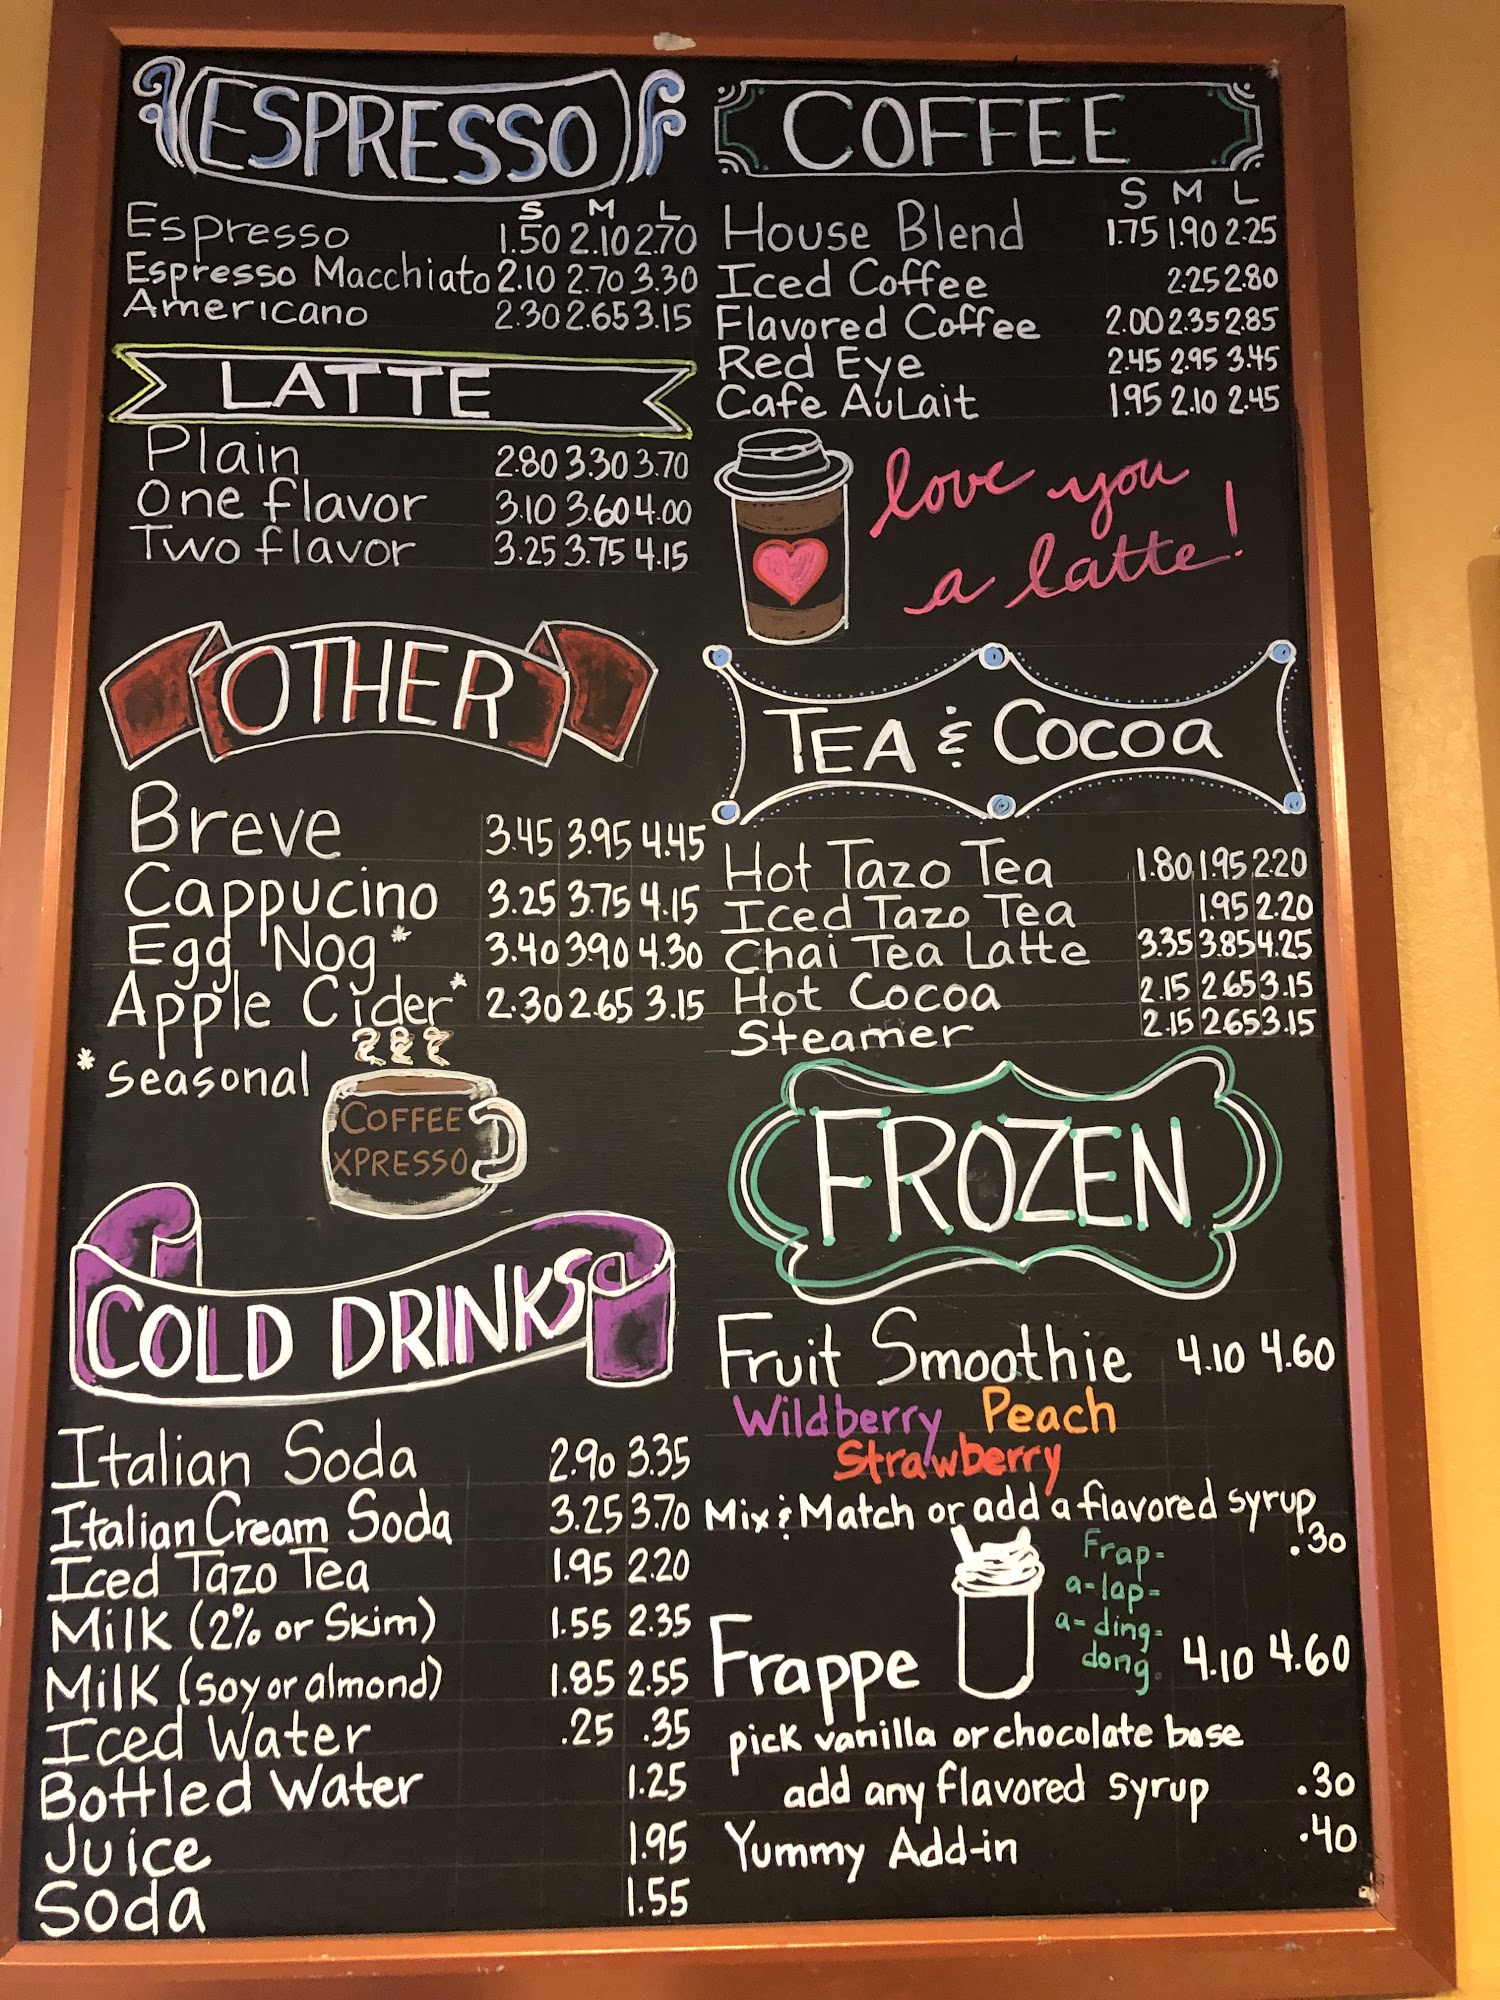 ESPRESSO
S M L
Espresso 1.50 2.10 2.70
Espresso Macchiato 2.10 2.70 3.30
Americano 2.30 2.65 3.15
LATTE
Plain 2.80 3.30 3.70
One flavor 3.10 3.60 4.00
Two flavor 3.25 3.75 4.15
OTHER
Breve 3.45 3.95 4.45
Cappucino 3.25 3.75 4.15
Egg Nog* 3.40 3.90 4.30
Apple Cider* 2.30 2.65 3.15
* Seasonal
COFFEE
XPRESSO
COLD DRINKS
Italian Soda 2.90 3.35
Italian Cream Soda 3.25 3.70
Iced Tazo Tea 1.95 2.20
Milk (2% or Skim) 1.55 2.35
Milk (soy or almond) 1.85 2.55
Iced Water .25 .35
Bottled Water 1.25
Juice 1.95
Soda 1.55
COFFEE
S M L
House Blend 1.75 1.90 2.25
Iced Coffee 2.25 2.80
Flavored Coffee 2.00 2.35 2.85
Red Eye 2.45 2.95 3.45
Cafe AuLait 1.95 2.10 2.45
love you
a latte!
TEA & COCOA
Hot Tazo Tea 1.80 1.95 2.20
Iced Tazo Tea 1.95 2.20
Chai Tea Latte 3.35 3.85 4.25
Hot Cocoa 2.15 2.65 3.15
Steamer 2.15 2.65 3.15
FROZEN
Fruit Smoothie 4.10 4.60
Wildberry Peach
Strawberry
Mix & Match or add a flavored syrup
.30
Frap-
a-lap-
a-ding-
dong.
Frappe 4.10 4.60
pick vanilla or chocolate base
add any flavored syrup .30
Yummy Add-in .40